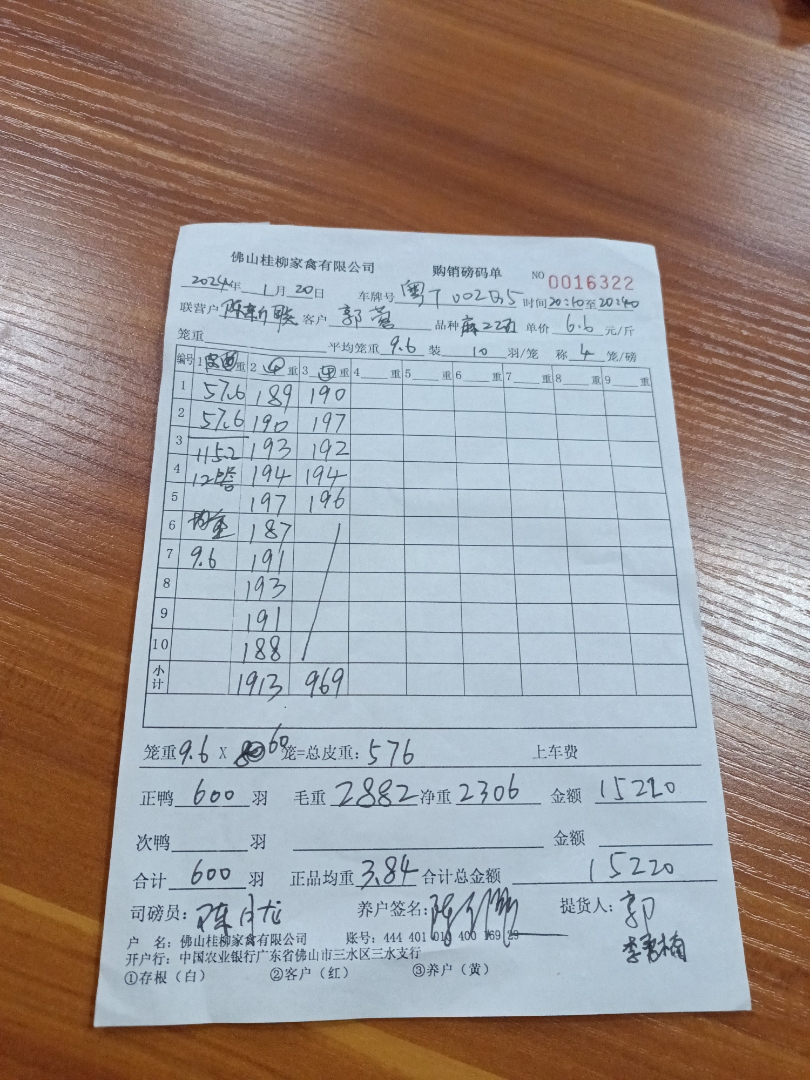 佛山桂柳家禽有限公司 购销磅码单 NO 0016322
2024年 1月20日 车牌号 粤T 002B5 时间20:10至20:40
联营户 陈新 客户 郭 品种 麻 单价 6.6 元/斤
笼重 平均笼重 9.6 装 10 羽/笼 称 4 笼/磅
编号 1 重 2 重 3 重 4 重 5 重 6 重 7 重 8 重 9 重
1 57.6 189 190
2 57.6 190 197
3 115.2 193 192
4 12 194 194
5 197 196
6 均重 187
7 9.6 191
8 193
9 191
10 188
小计 1913 969
笼重 9.6 X 60 笼=总皮重: 576 上车费
正鸭 600 羽 毛重 2882 净重 2306 金额 15220
次鸭 羽 金额
合计 600 羽 正品均重 3.84 合计总金额 15220
司磅员: 陈月龙 养户签名: 提货人: 郭
户 名: 佛山桂柳家禽有限公司 账号: 444 401 010 400 169 29
李 楠
开户行: 中国农业银行广东省佛山市三水区三水支行
①存根（白） ②客户（红） ③养户（黄）